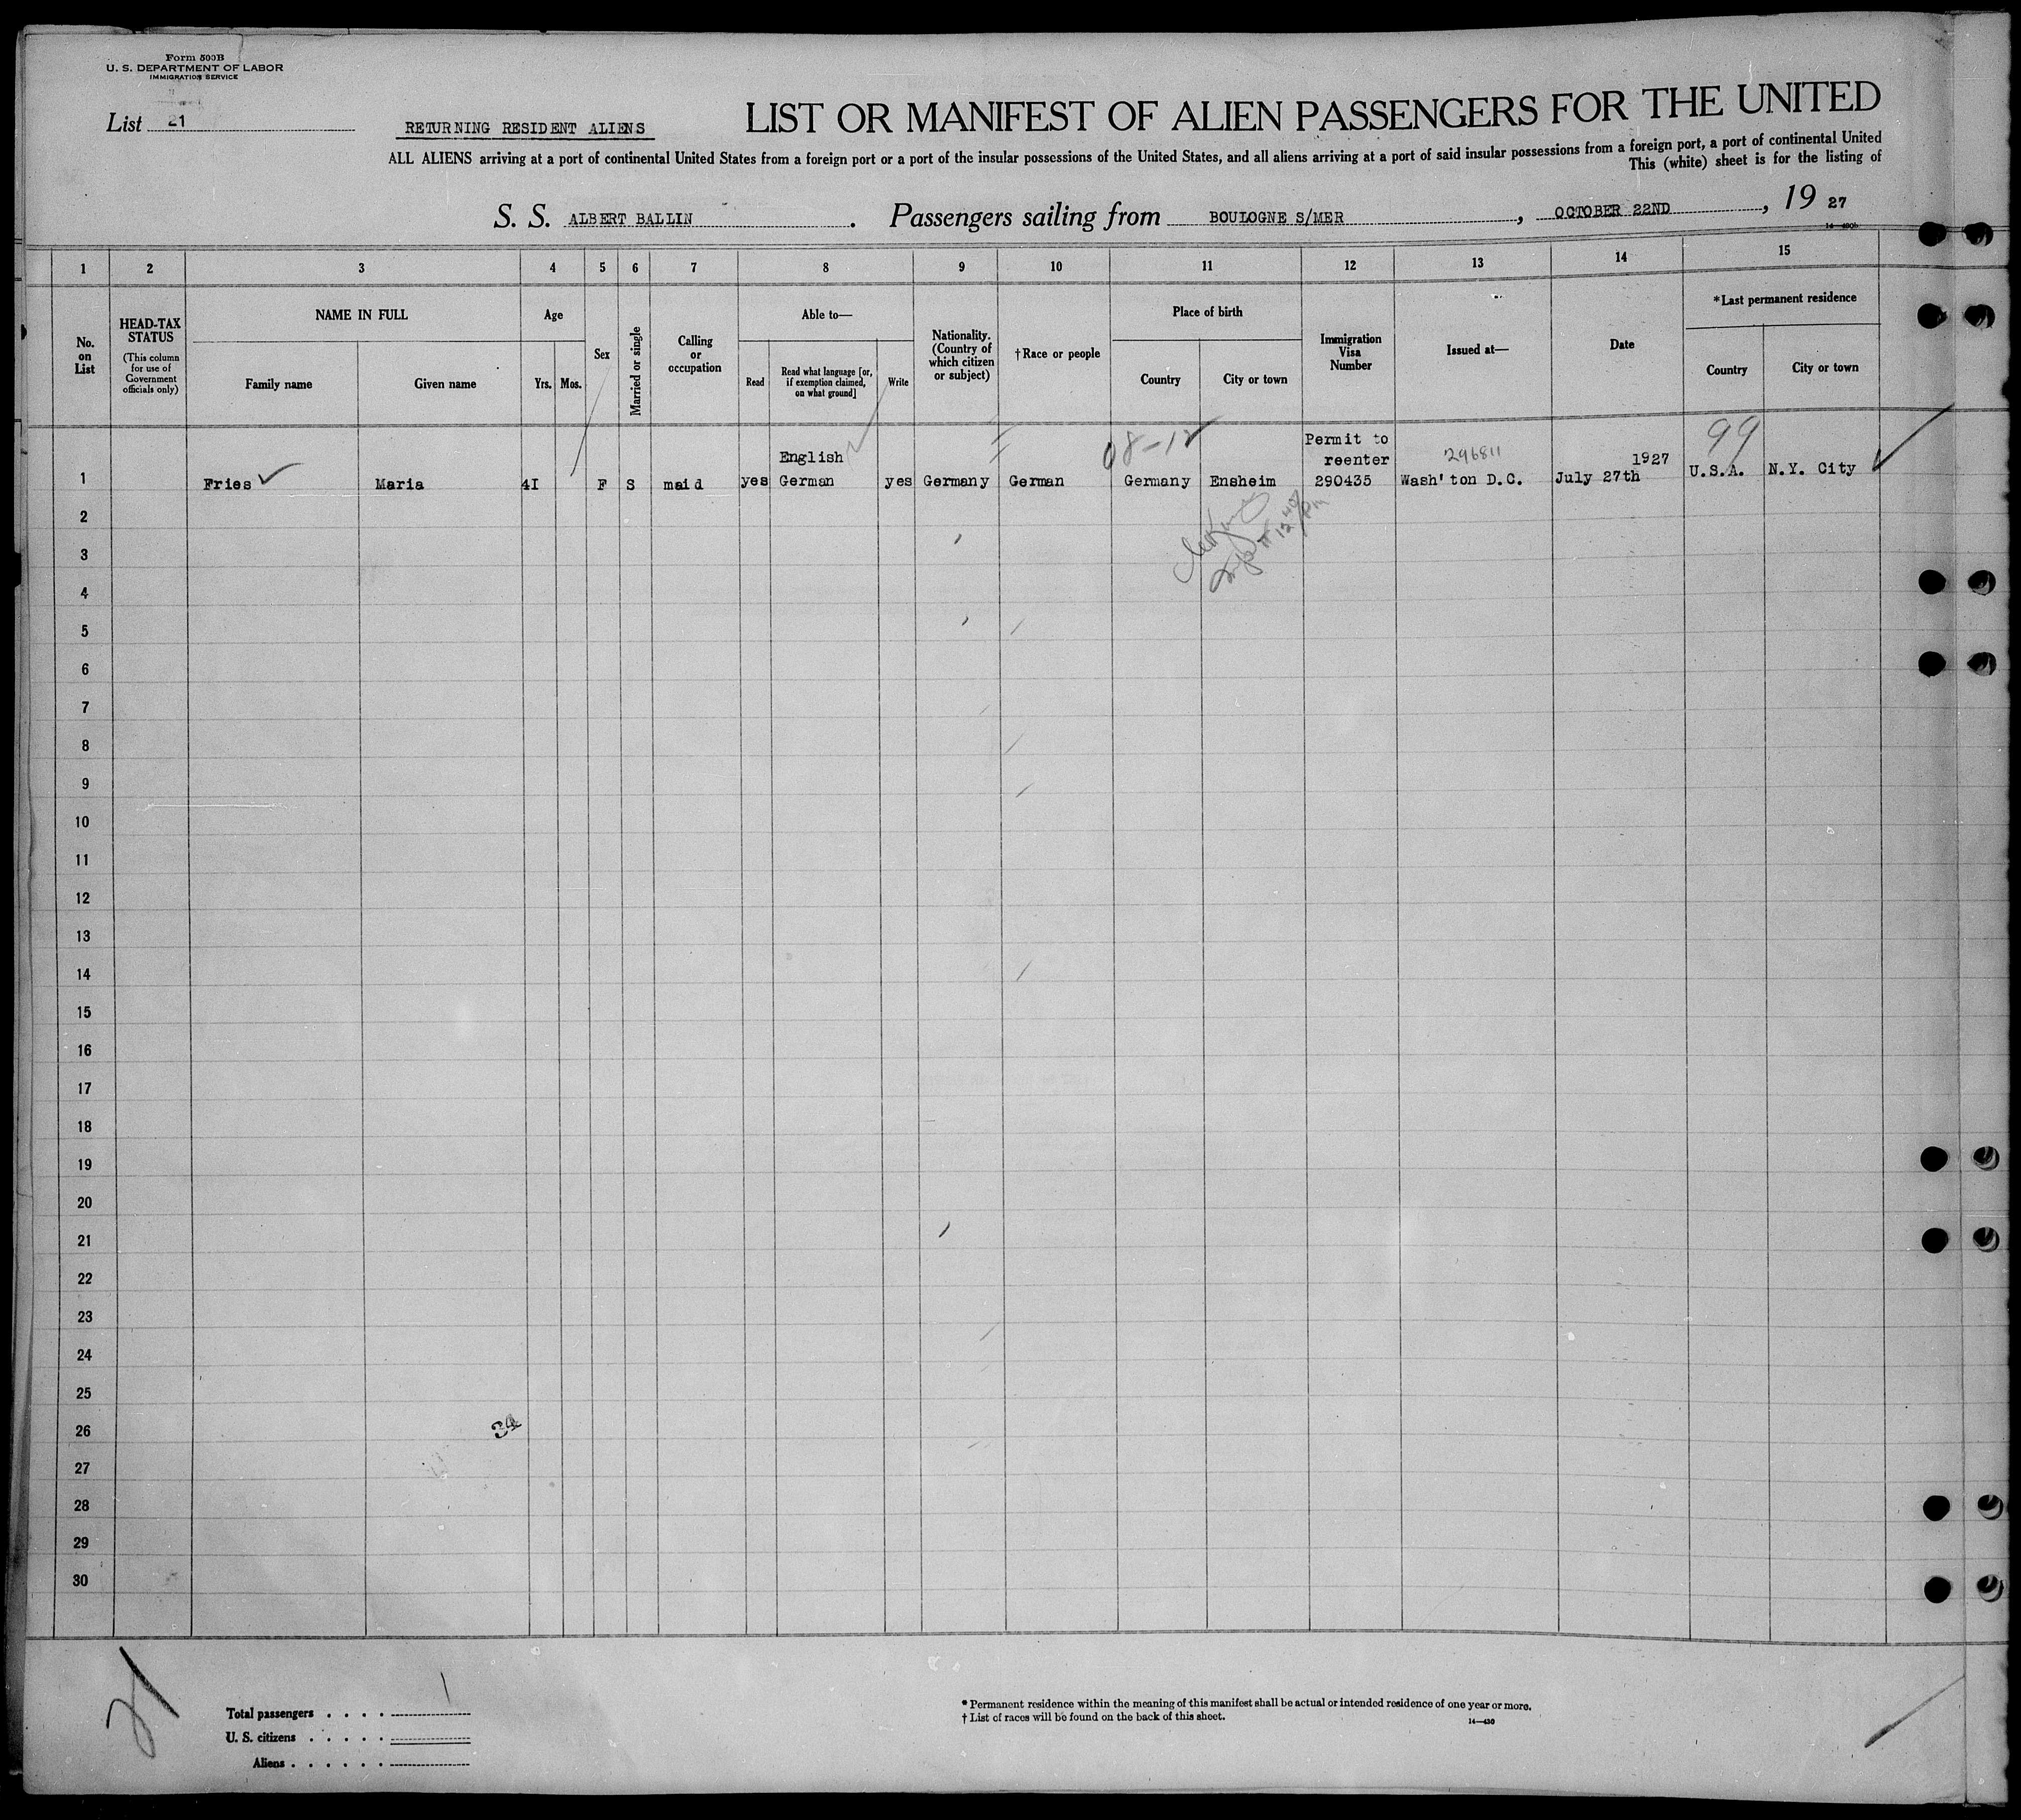 Form 500B
U. S. DEPARTMENT OF LABOR
IMMIGRATION SERVICE
List 21
RETURNING RESIDENT ALIENS
LIST OR MANIFEST OF ALIEN PASSENGERS FOR THE UNITED
ALL ALIENS arriving at a port of continental United States from a foreign port or a port of the insular possessions of the United States, and all aliens arriving at a port of said insular possessions from a foreign port, a port of continental United
This (white) sheet is for the listing of
S. S. ALBERT BALLIN . Passengers sailing from BOULOGNE S/MER , OCTOBER 22ND , 19 27
1 2 3 4 5 6 7 8 9 10 11 12 13 14 15
No. on List
HEAD-TAX STATUS
(This column for use of Government officials only)
NAME IN FULL
Family name
Given name
Age
Yrs.
Mos.
Sex
Married or single
Calling or occupation
Able to—
Read
Read what language [or, if exemption claimed, on what ground]
Write
Nationality. (Country of which citizen or subject)
†Race or people
Place of birth
Country
City or town
Immigration Visa Number
Issued at—
Date
*Last permanent residence
Country
City or town
08-12
99
Permit to
English reenter 296811 1927
1 Fries Maria 4I F S maid yes German yes Germany German Germany Ensheim 290435 Wash'ton D.C. July 27th U.S.A. N.Y. City
2
3
4
5
6
7
8
9
10
11
12
13
14
15
16
17
18
19
20
21
22
23
24
25
26
34
27
28
29
30
21
Total passengers . . . . 1
U. S. citizens . . . . .
Aliens . . . . . .
* Permanent residence within the meaning of this manifest shall be actual or intended residence of one year or more.
† List of races will be found on the back of this sheet.
14—430